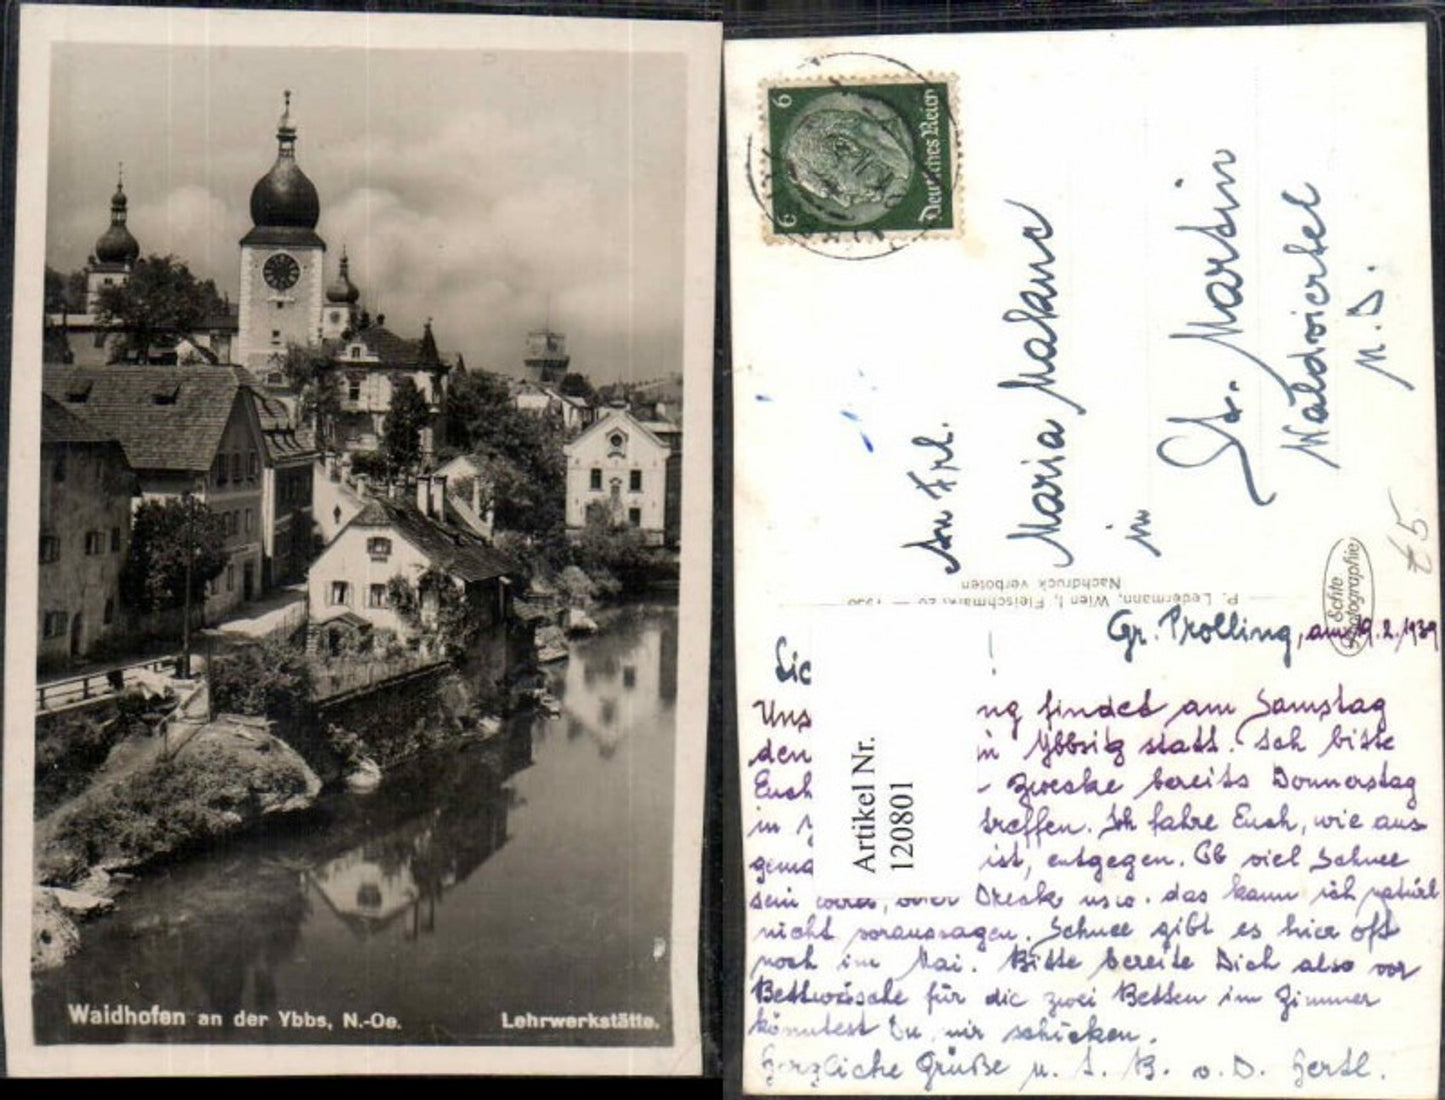 Waidhofen an der Ybbs, N.-Oe.
Lehrwerkstätte.
6
6
Deutsches Reich
An Frl.
Maria Makana
in
St. Martin
Waldviertel
N.D.
65
Echte Photographie
P. Ledermann, Wien I, Fleischmarkt 20 — 1936
Nachdruck verboten
Artikel Nr.
120801
Gr. Prolling, am 19.2.1939
Lie !
Uns ng findet am Samstag
den in Ybbsitz statt. Ich bitte
Euch - zwecke bereits Donnerstag
in Y treffen. Ich fahre Euch, wie aus
gema ist, entgegen. Ob viel Schnee
sein wird, oder Dreck usw. das kann ich natürl
nicht voraussagen. Schnee gibt es hier oft
noch im Mai. Bitte bereite Dich also vor
Bettwäsche für die zwei Betten im Zimmer
könntest Du mir schicken.
Herzliche Grüße u. s. B. v. D. Hertl.